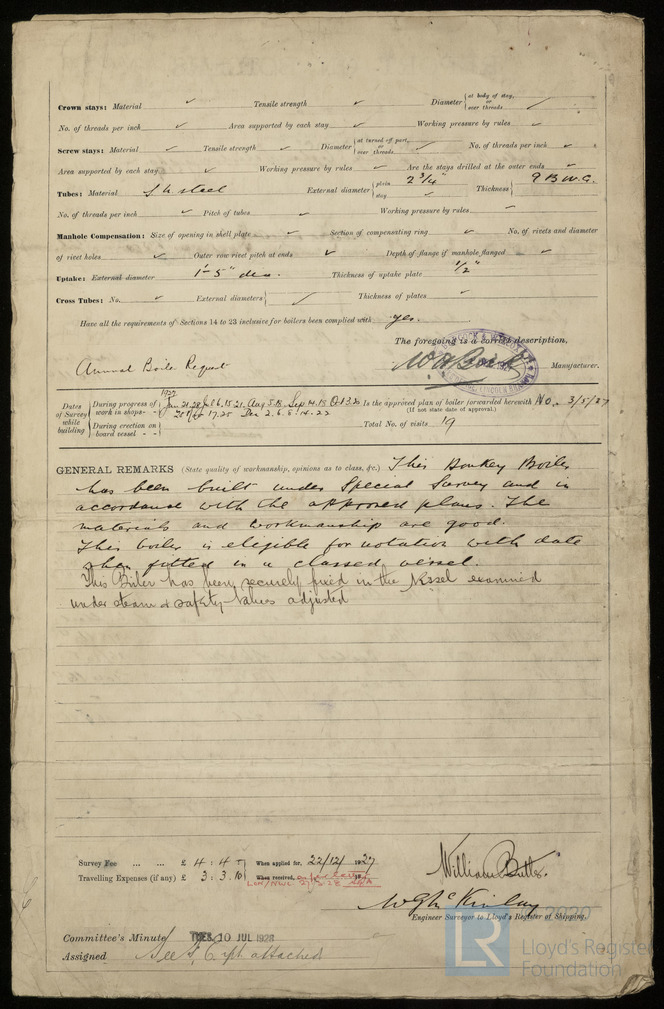 Crown stays: Material ✓ Tensile strength ✓ Diameter { at body of stay, or over threads ✓
No. of threads per inch ✓ Area supported by each stay ✓ Working pressure by rules ✓
Screw stays: Material ✓ Tensile strength ✓ Diameter { at turned off part, or over threads ✓ No. of threads per inch ✓
Area supported by each stay ✓ Working pressure by rules ✓ Are the stays drilled at the outer ends ✓
Tubes: Material S M steel External diameter { plain 2 3/4" stay ✓ Thickness { 9 B.W.G.
No. of threads per inch ✓ Pitch of tubes ✓ Working pressure by rules ✓
Manhole Compensation: Size of opening in shell plate ✓ Section of compensating ring ✓ No. of rivets and diameter
of rivet holes ✓ Outer row rivet pitch at ends ✓ Depth of flange if manhole flanged ✓
Uptake: External diameter 1'-5" dia. Thickness of uptake plate 1/2"
Cross Tubes: No. ✓ External diameters { ✓ Thickness of plates ✓
Have all the requirements of Sections 14 to 23 inclusive for boilers been complied with yes.
The foregoing is a correct description,
Annual Boiler Request Manufacturer.
Dates of Survey while building
1927
During progress of work in shops - - Jan 21.28 Jul 6.15.21. Aug 5.18. Sep 14.15 Oct 3.20 Is the approved plan of boiler forwarded herewith No. 3/5/27
17.25 Dec 2.6.8.14.22 (If not state date of approval.)
During erection on board vessel - - Total No. of visits 19
GENERAL REMARKS (State quality of workmanship, opinions as to class, &c.) This Donkey Boiler
has been built under Special Survey and in
accordance with the approved plans. The
materials and workmanship are good.
This boiler is eligible for notation with date
when fitted in a classed vessel.
This Boiler has been securely fixed in the Vessel examined
under steam & safety valves adjusted
Survey Fee ... ... £ 4 : 4 : When applied for, 22/12/1927
Travelling Expenses (if any) £ 3 : 3.10 When received,
William Butler.
W G McKinlay
Engineer Surveyor to Lloyd's Register of Shipping.
2020
Committee's Minute TUES. 10 JUL 1928
Assigned See attached
LR Lloyd's Register
Foundation